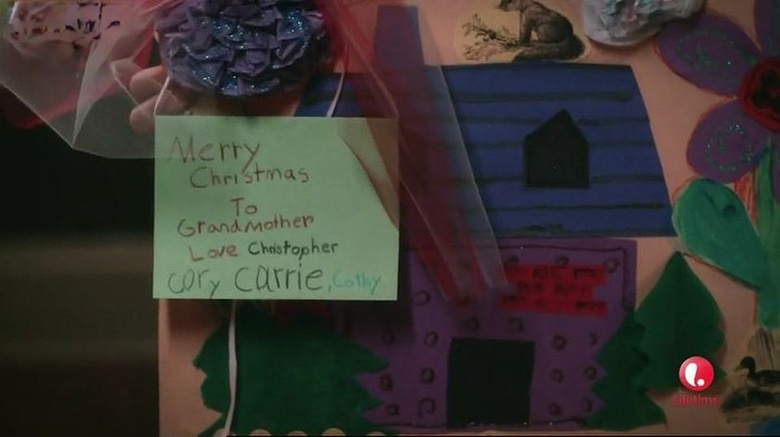 Merry
Christmas
To
Grandmother
Love Christopher
Cory Carrie, Cathy
Lifetime